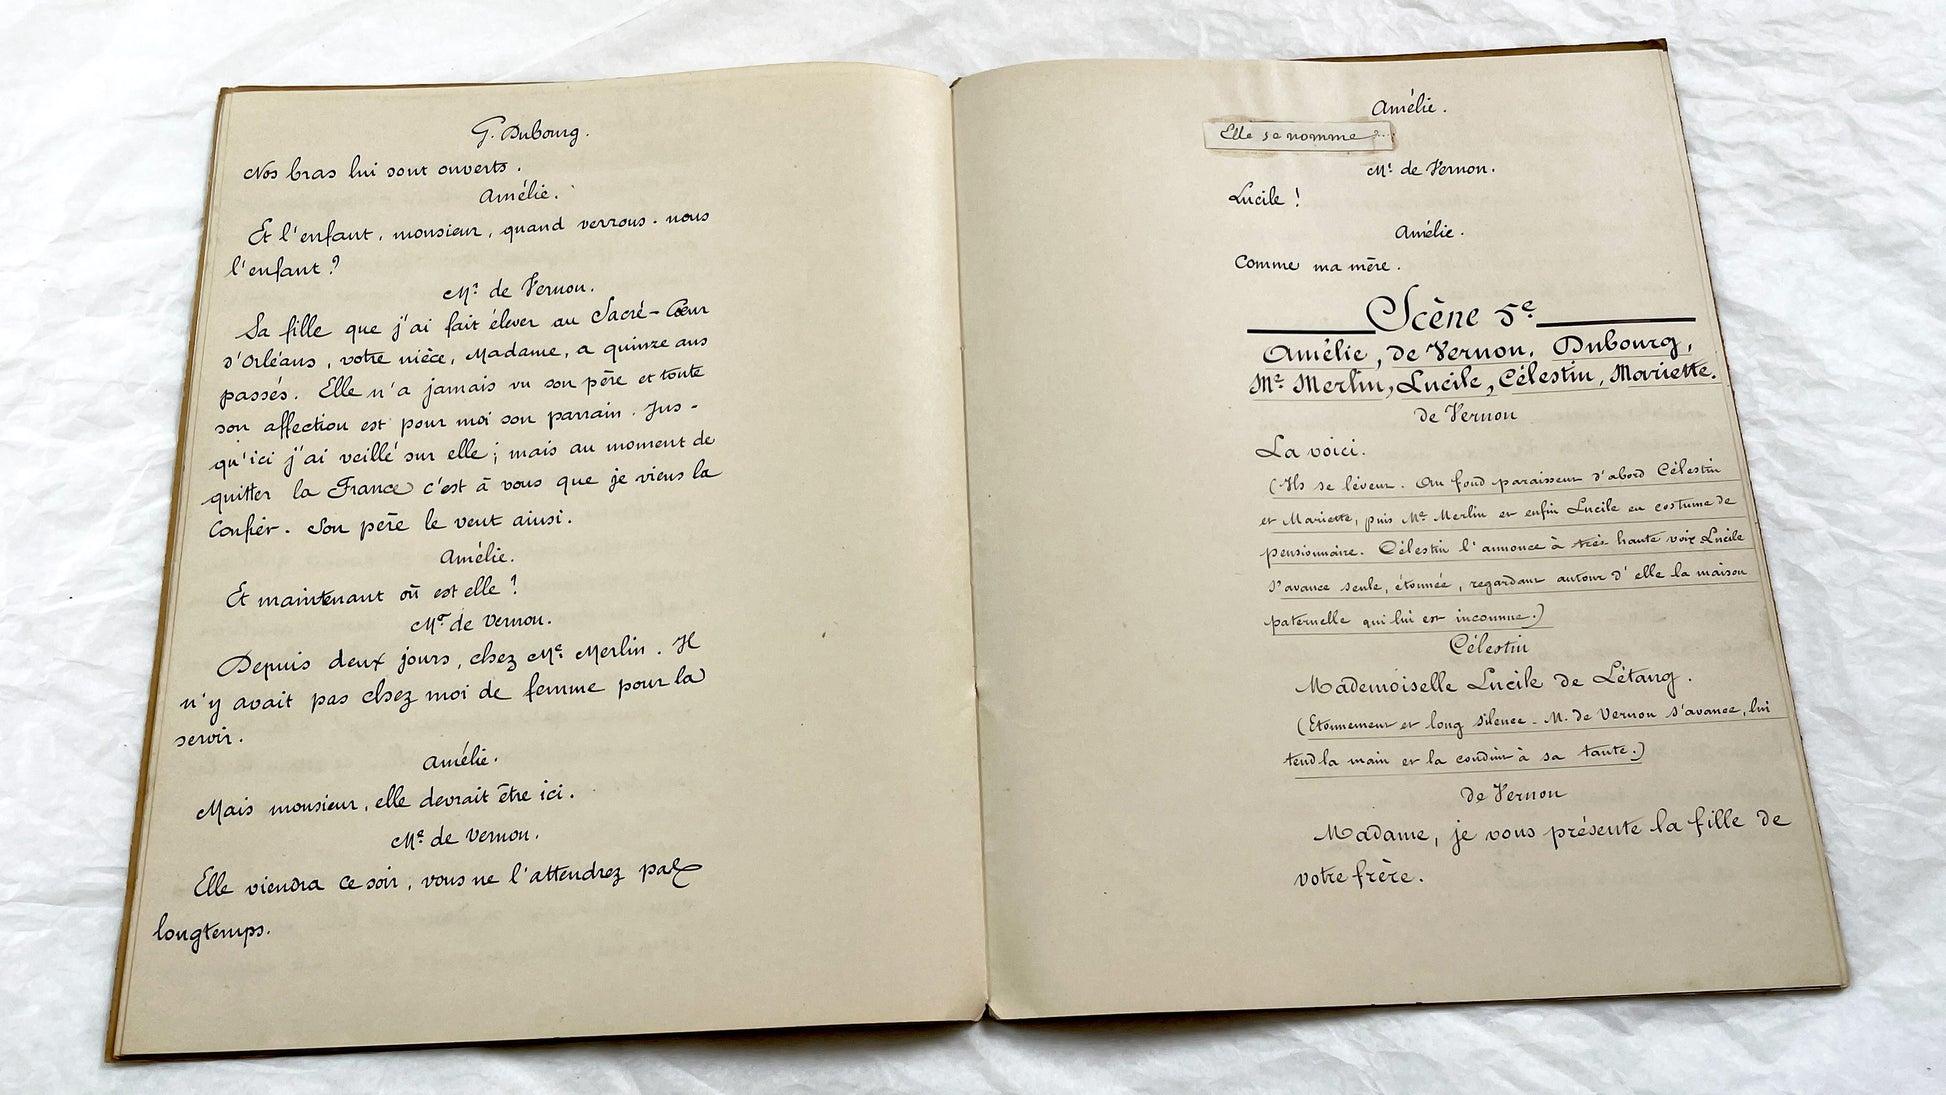 G. Dubourg.
Nos bras lui sont ouverts.
Amélie.
Et l'enfant, monsieur, quand verrons-nous
l'enfant ?
Mr de Vernon.
Sa fille que j'ai fait élever au Sacré-Cœur
d'Orléans, votre nièce, Madame, a quinze ans
passés. Elle n'a jamais vu son père et toute
son affection est pour moi son parrain. Jus-
qu'ici j'ai veillé sur elle ; mais au moment de
quitter la France c'est à vous que je viens la
Confier. Son père le veut ainsi.
Amélie.
Et maintenant où est elle ?
Mr de Vernon.
Depuis deux jours, chez Me Merlin. Il
n'y avait pas chez moi de femme pour la
servir.
Amélie.
Mais monsieur, elle devrait être ici.
Mr de Vernon.
Elle viendra ce soir, vous ne l'attendrez pas
longtemps.
Amélie.
Elle se nomme ?...
Mr de Vernon.
Lucile !
Amélie.
Comme ma mère.
Scène 5e
Amélie, de Vernon, Dubourg,
Me Merlin, Lucile, Célestin, Mariette.
de Vernon
La voici.
(Ils se lèvent. Au fond paraissent d'abord Célestin
et Mariette, puis Me Merlin et enfin Lucile en costume de
pensionnaire. Célestin l'annonce à très haute voix Lucile
s'avance seule, étonnée, regardant autour d'elle la maison
paternelle qui lui est inconnue.)
Célestin
Mademoiselle Lucile de Létang.
(Etonnement et long silence - M. de Vernon s'avance, lui
tend la main et la conduit à sa tante.)
de Vernon
Madame, je vous présente la fille de
votre frère.